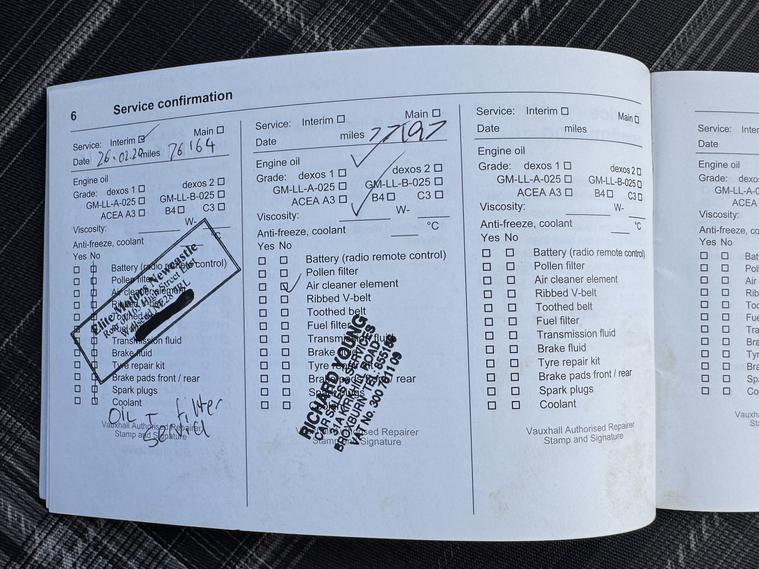 6 Service confirmation
Service: Interim Main
Date 26.02.20 miles 76164
Engine oil
Grade: dexos 1 dexos 2
GM-LL-A-025 GM-LL-B-025
ACEA A3 B4 C3
Viscosity: W-
Anti-freeze, coolant °C
Yes No
Battery (radio remote control)
Pollen filter
Air cleaner element
Transmission fluid
Brake fluid
Tyre repair kit
Brake pads front / rear
Spark plugs
Coolant
Elite Motors Newcastle
OIL + filter
Service
Vauxhall Authorised Repairer
Stamp and Signature
Service: Interim Main
Date miles 77197
Engine oil
Grade: dexos 1 dexos 2
GM-LL-A-025 GM-LL-B-025
ACEA A3 B4 C3
Viscosity: W-
Anti-freeze, coolant °C
Yes No
Battery (radio remote control)
Pollen filter
Air cleaner element
Ribbed V-belt
Toothed belt
Fuel filter
Transmission fluid
Brake
Tyre
Brake pads front / rear
Spark plugs
RICHARD YOUNG
CAR SALES & SERVICES
BROXBURN
VAT No.
Authorised Repairer
Stamp and Signature
Service: Interim Main
Date miles
Engine oil
Grade: dexos 1 dexos 2
GM-LL-A-025 GM-LL-B-025
ACEA A3 B4 C3
Viscosity: W-
Anti-freeze, coolant °C
Yes No
Battery (radio remote control)
Pollen filter
Air cleaner element
Ribbed V-belt
Toothed belt
Fuel filter
Transmission fluid
Brake fluid
Tyre repair kit
Brake pads front / rear
Spark plugs
Coolant
Vauxhall Authorised Repairer
Stamp and Signature
Service: Inter
Date
Engine oil
Grade: dexo
GM-LL-A-0
ACEA
Viscosity:
Anti-freeze, co
Yes No
Bat
Po
Air
Rib
To
Fu
Tra
Br
Ty
Bra
Sp
Co
Vauxha
St